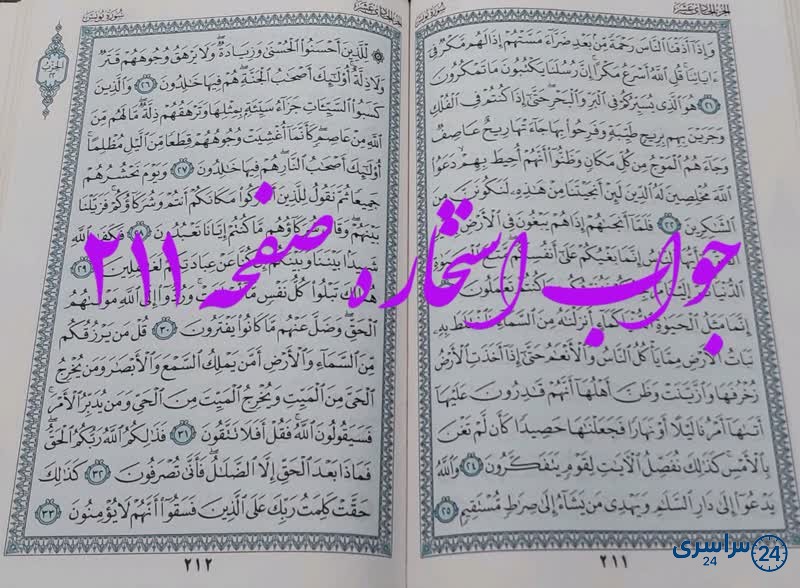 الجزء الحادي عشر
سورة يونس
وَإِذَآ أَذَقْنَا ٱلنَّاسَ رَحْمَةً مِّنۢ بَعْدِ ضَرَّآءَ مَسَّتْهُمْ إِذَا لَهُم مَّكْرٌ فِىٓ
ءَايَاتِنَا قُلِ ٱللَّهُ أَسْرَعُ مَكْرًا إِنَّ رُسُلَنَا يَكْتُبُونَ مَا تَمْكُرُونَ
٢١ هُوَ ٱلَّذِى يُسَيِّرُكُمْ فِى ٱلْبَرِّ وَٱلْبَحْرِ حَتَّىٰٓ إِذَا كُنتُمْ فِى ٱلْفُلْكِ
وَجَرَيْنَ بِهِم بِرِيحٍ طَيِّبَةٍ وَفَرِحُوا۟ بِهَا جَآءَتْهَا رِيحٌ عَاصِفٌ
وَجَآءَهُمُ ٱلْمَوْجُ مِن كُلِّ مَكَانٍ وَظَنُّوٓا۟ أَنَّهُمْ أُحِيطَ بِهِمْ دَعَوُا۟
ٱللَّهَ مُخْلِصِينَ لَهُ ٱلدِّينَ لَئِنْ أَنجَيْتَنَا مِنْ هَٰذِهِۦ لَنَكُونَنَّ مِنَ
ٱلشَّٰكِرِينَ ٢٢ فَلَمَّآ أَنجَىٰهُمْ إِذَا هُمْ يَبْغُونَ فِى ٱلْأَرْضِ
إِنَّمَا بَغْيُكُمْ عَلَىٰٓ أَنفُسِكُم
ٱلدُّنْيَا تَعْمَلُونَ
إِنَّمَا مَثَلُ ٱلْحَيَوٰةِ ٱلدُّنْيَا كَمَآءٍ أَنزَلْنَٰهُ مِنَ ٱلسَّمَآءِ فَٱخْتَلَطَ بِهِۦ
نَبَاتُ ٱلْأَرْضِ مِمَّا يَأْكُلُ ٱلنَّاسُ وَٱلْأَنْعَٰمُ حَتَّىٰٓ إِذَآ أَخَذَتِ ٱلْأَرْضُ
زُخْرُفَهَا وَٱزَّيَّنَتْ وَظَنَّ أَهْلُهَآ أَنَّهُمْ قَٰدِرُونَ عَلَيْهَآ
أَتَىٰهَآ أَمْرُنَا لَيْلًا أَوْ نَهَارًا فَجَعَلْنَٰهَا حَصِيدًا كَأَن لَّمْ تَغْنَ
بِٱلْأَمْسِ كَذَٰلِكَ نُفَصِّلُ ٱلْءَايَٰتِ لِقَوْمٍ يَتَفَكَّرُونَ ٢٤ وَٱللَّهُ
يَدْعُوٓا۟ إِلَىٰ دَارِ ٱلسَّلَٰمِ وَيَهْدِى مَن يَشَآءُ إِلَىٰ صِرَٰطٍ مُّسْتَقِيمٍ ٢٥
٢١١
الجزء الحادي عشر
سورة يونس
الحزب
٢٢
لِّلَّذِينَ أَحْسَنُوا۟ ٱلْحُسْنَىٰ وَزِيَادَةٌ وَلَا يَرْهَقُ وُجُوهَهُمْ قَتَرٌ
وَلَا ذِلَّةٌ أُو۟لَٰٓئِكَ أَصْحَٰبُ ٱلْجَنَّةِ هُمْ فِيهَا خَٰلِدُونَ ٢٦ وَٱلَّذِينَ
كَسَبُوا۟ ٱلسَّيِّـَٔاتِ جَزَآءُ سَيِّئَةٍۭ بِمِثْلِهَا وَتَرْهَقُهُمْ ذِلَّةٌ مَّا لَهُم مِّنَ
ٱللَّهِ مِنْ عَاصِمٍ كَأَنَّمَآ أُغْشِيَتْ وُجُوهُهُمْ قِطَعًا مِّنَ ٱلَّيْلِ مُظْلِمًا
أُو۟لَٰٓئِكَ أَصْحَٰبُ ٱلنَّارِ هُمْ فِيهَا خَٰلِدُونَ ٢٧ وَيَوْمَ نَحْشُرُهُمْ
جَمِيعًا ثُمَّ نَقُولُ لِلَّذِينَ أَشْرَكُوا۟ مَكَانَكُمْ أَنتُمْ وَشُرَكَآؤُكُمْ فَزَيَّلْنَا
بَيْنَهُمْ وَقَالَ شُرَكَآؤُهُم مَّا كُنتُمْ إِيَّانَا تَعْبُدُونَ ٢٨ فَكَفَىٰ بِٱللَّهِ
شَهِيدًۢا بَيْنَنَا وَبَيْنَكُمْ إِن كُنَّا عَنْ عِبَادَتِكُمْ لَغَٰفِلِينَ ٢٩
هُنَالِكَ تَبْلُوا۟ كُلُّ نَفْسٍ مَّآ أَسْلَفَتْ وَرُدُّوٓا۟ إِلَى ٱللَّهِ مَوْلَىٰهُمُ
ٱلْحَقِّ وَضَلَّ عَنْهُم مَّا كَانُوا۟ يَفْتَرُونَ ٣٠ قُلْ مَن يَرْزُقُكُم
مِّنَ ٱلسَّمَآءِ وَٱلْأَرْضِ أَمَّن يَمْلِكُ ٱلسَّمْعَ وَٱلْأَبْصَٰرَ وَمَن يُخْرِجُ
ٱلْحَىَّ مِنَ ٱلْمَيِّتِ وَيُخْرِجُ ٱلْمَيِّتَ مِنَ ٱلْحَىِّ وَمَن يُدَبِّرُ ٱلْأَمْرَ
فَسَيَقُولُونَ ٱللَّهُ فَقُلْ أَفَلَا تَتَّقُونَ ٣١ فَذَٰلِكُمُ ٱللَّهُ رَبُّكُمُ ٱلْحَقُّ
فَمَاذَا بَعْدَ ٱلْحَقِّ إِلَّا ٱلضَّلَٰلُ فَأَنَّىٰ تُصْرَفُونَ ٣٢ كَذَٰلِكَ
حَقَّتْ كَلِمَتُ رَبِّكَ عَلَى ٱلَّذِينَ فَسَقُوٓا۟ أَنَّهُمْ لَا يُؤْمِنُونَ ٣٣
٢١٢
جواب استخاره صفحه ۲۱۱
سراسری 24
24